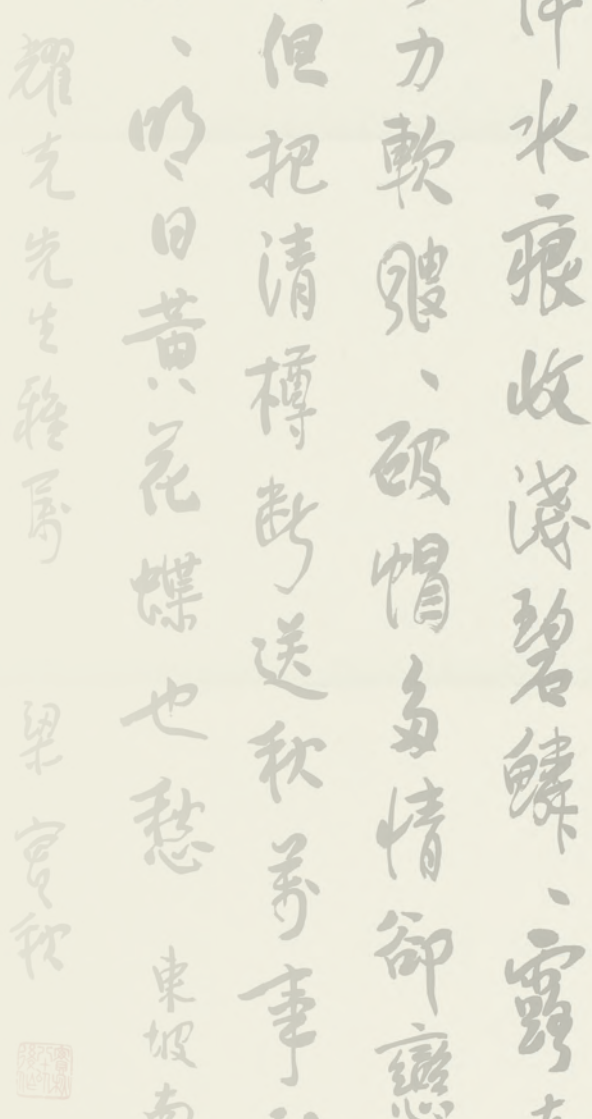 水痕收淺碧鱗、露
力軟颼、破帽多情卻戀
但把清樽斷送秋萬事
、明日黃花蝶也愁 東坡南
耀克先生雅屬 梁實秋